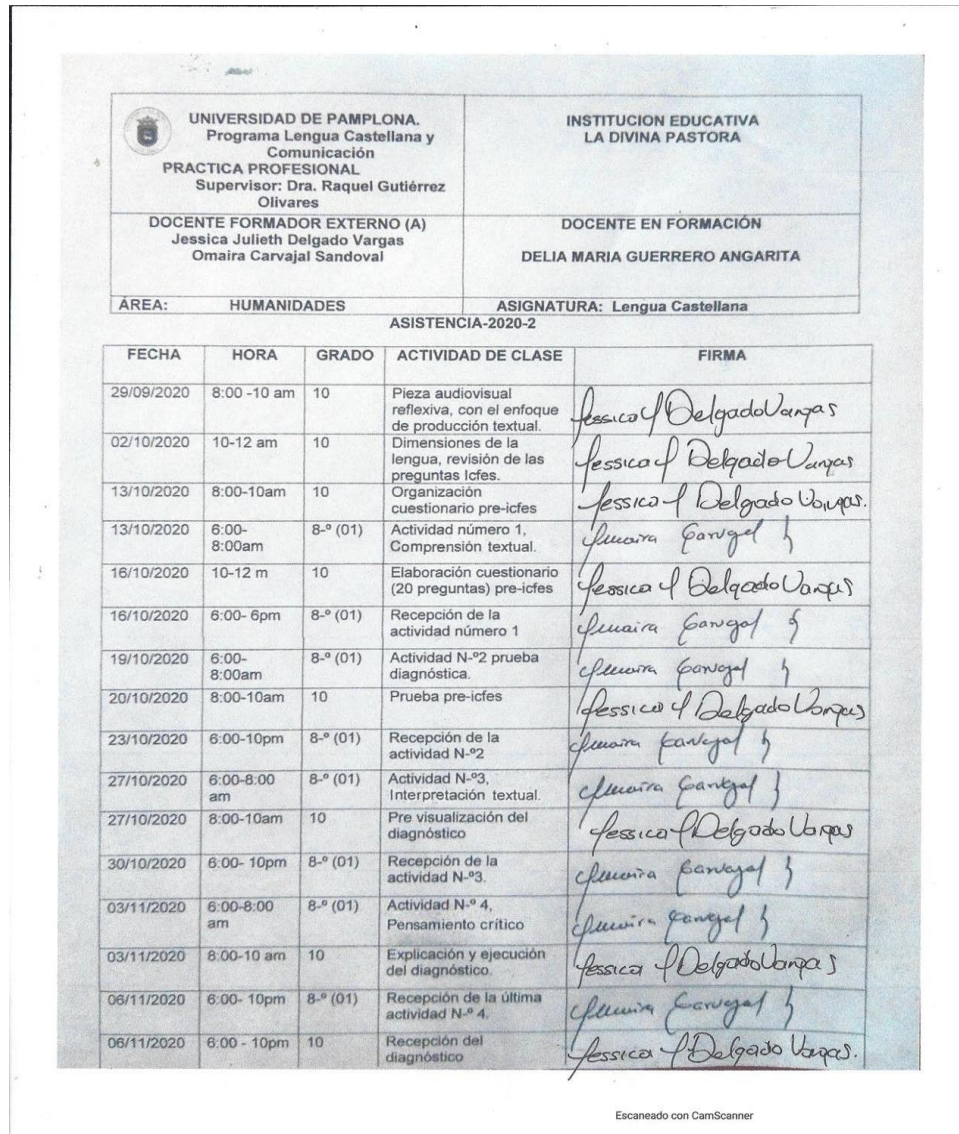 UNIVERSIDAD DE PAMPLONA.
Programa Lengua Castellana y
Comunicación
PRACTICA PROFESIONAL
Supervisor: Dra. Raquel Gutiérrez
Olivares
INSTITUCION EDUCATIVA
LA DIVINA PASTORA
DOCENTE FORMADOR EXTERNO (A)
Jessica Julieth Delgado Vargas
Omaira Carvajal Sandoval
DOCENTE EN FORMACIÓN
DELIA MARIA GUERRERO ANGARITA
ÁREA: HUMANIDADES
ASIGNATURA: Lengua Castellana
ASISTENCIA-2020-2
FECHA HORA GRADO ACTIVIDAD DE CLASE FIRMA
29/09/2020 8:00 -10 am 10 Pieza audiovisual
reflexiva, con el enfoque
de producción textual.
Jessica J Delgado Vargas
02/10/2020 10-12 am 10 Dimensiones de la
lengua, revisión de las
preguntas Icfes.
Jessica J Delgado Vargas
13/10/2020 8:00-10am 10 Organización
cuestionario pre-icfes
Jessica J Delgado Vargas.
13/10/2020 6:00-
8:00am
8-º (01) Actividad número 1,
Comprensión textual.
Omaira Carvajal
16/10/2020 10-12 m 10 Elaboración cuestionario
(20 preguntas) pre-icfes
Jessica J Delgado Vargas
16/10/2020 6:00- 6pm 8-º (01) Recepción de la
actividad número 1
Omaira Carvajal
19/10/2020 6:00-
8:00am
8-º (01) Actividad N-º2 prueba
diagnóstica.
Omaira Carvajal
20/10/2020 8:00-10am 10 Prueba pre-icfes
Jessica J Delgado Vargas
23/10/2020 6:00-10pm 8-º (01) Recepción de la
actividad N-º2
Omaira Carvajal
27/10/2020 6:00-8:00
am
8-º (01) Actividad N-º3,
Interpretación textual.
Omaira Carvajal
27/10/2020 8:00-10am 10 Pre visualización del
diagnóstico
Jessica J Delgado Vargas
30/10/2020 6:00- 10pm 8-º (01) Recepción de la
actividad N-º3.
Omaira Carvajal
03/11/2020 6:00-8:00
am
8-º (01) Actividad N-º 4,
Pensamiento crítico
Omaira Carvajal
03/11/2020 8:00-10 am 10 Explicación y ejecución
del diagnóstico.
Jessica J Delgado Vargas
06/11/2020 6:00- 10pm 8-º (01) Recepción de la última
actividad N-º 4.
Omaira Carvajal
06/11/2020 6:00 - 10pm 10 Recepción del
diagnóstico
Jessica J Delgado Vargas.
Escaneado con CamScanner